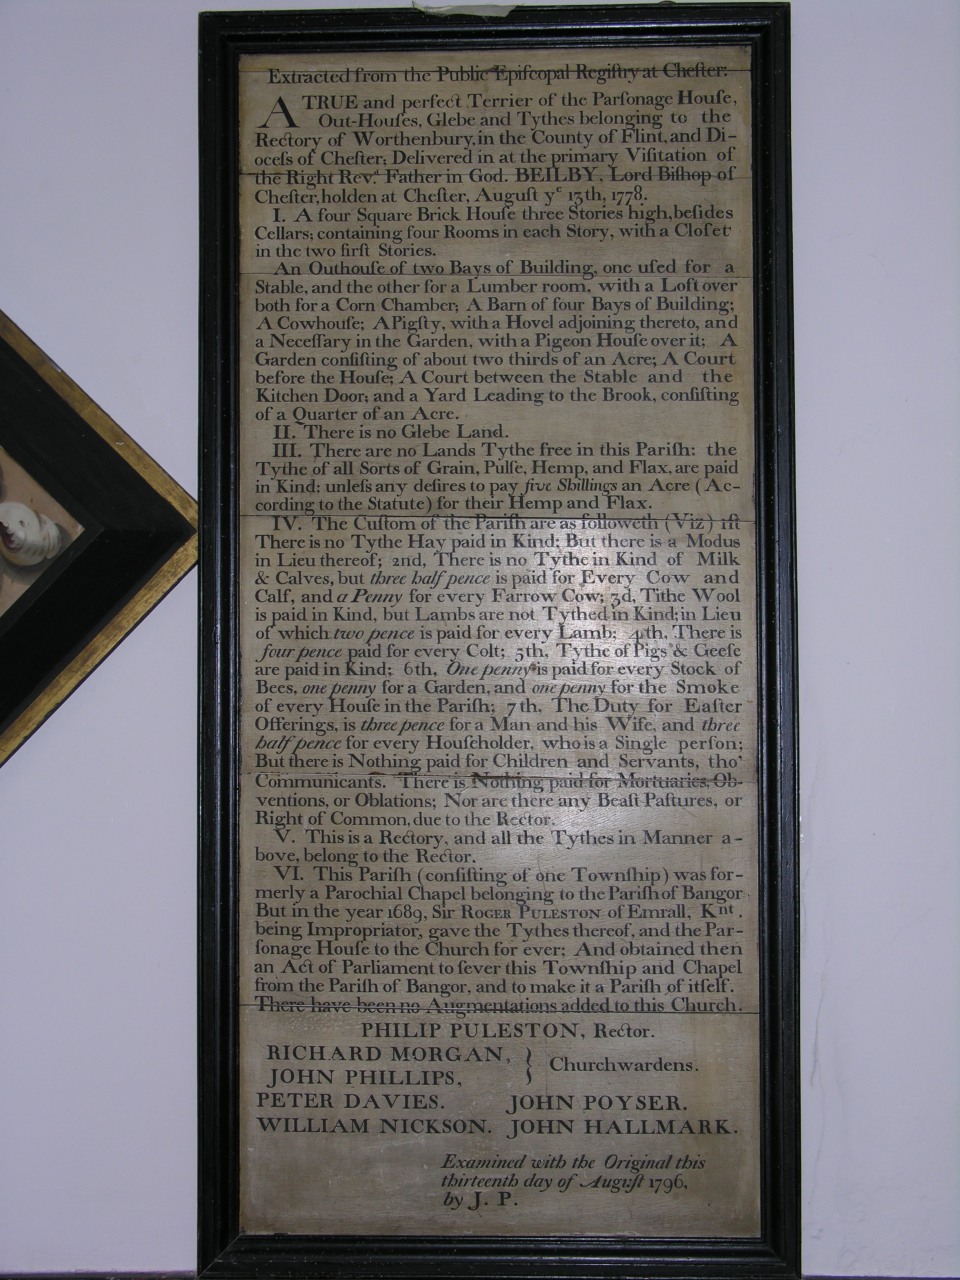 Extracted from the Public Epiſcopal Regiſtry at Cheſter:
A TRUE and perfect Terrier of the Parſonage Houſe,
Out-Houſes, Glebe and Tythes belonging to the
Rectory of Worthenbury, in the County of Flint, and Di-
oceſs of Cheſter; Delivered in at the primary Viſitation of
the Right Rev.d Father in God. BEILBY, Lord Biſhop of
Cheſter, holden at Cheſter, Auguſt ye 13th, 1778.
I. A four Square Brick Houſe three Stories high, beſides
Cellars; containing four Rooms in each Story, with a Cloſet
in the two firſt Stories.
An Outhouſe of two Bays of Building, one uſed for a
Stable, and the other for a Lumber room, with a Loft over
both for a Corn Chamber; A Barn of four Bays of Building;
A Cowhouſe; A Pigſty, with a Hovel adjoining thereto, and
a Neceſſary in the Garden, with a Pigeon Houſe over it; A
Garden conſiſting of about two thirds of an Acre; A Court
before the Houſe; A Court between the Stable and the
Kitchen Door; and a Yard Leading to the Brook, conſiſting
of a Quarter of an Acre.
II. There is no Glebe Land.
III. There are no Lands Tythe free in this Pariſh: the
Tythe of all Sorts of Grain, Pulſe, Hemp, and Flax, are paid
in Kind; unleſs any deſires to pay five Shillings an Acre (Ac-
cording to the Statute) for their Hemp and Flax.
IV. The Cuſtom of the Pariſh are as followeth (Viz) 1ſt
There is no Tythe Hay paid in Kind; But there is a Modus
in Lieu thereof; 2nd, There is no Tythe in Kind of Milk
& Calves, but three half pence is paid for Every Cow and
Calf, and a Penny for every Farrow Cow; 3d, Tithe Wool
is paid in Kind, but Lambs are not Tythed in Kind; in Lieu
of which two pence is paid for every Lamb; 4th, There is
four pence paid for every Colt; 5th, Tythe of Pigs & Geeſe
are paid in Kind; 6th, One penny is paid for every Stock of
Bees, one penny for a Garden, and one penny for the Smoke
of every Houſe in the Pariſh; 7th, The Duty for Eaſter
Offerings, is three pence for a Man and his Wife, and three
half pence for every Houſeholder, who is a Single perſon;
But there is Nothing paid for Children and Servants, tho'
Communicants. There is Nothing paid for Mortuaries, Ob-
ventions, or Oblations; Nor are there any Beaſt Paſtures, or
Right of Common, due to the Rector.
V. This is a Rectory, and all the Tythes in Manner a-
bove, belong to the Rector.
VI. This Pariſh (conſiſting of one Townſhip) was for-
merly a Parochial Chapel belonging to the Pariſh of Bangor.
But in the year 1689, Sir ROGER PULESTON of Emrall, Knt.
being Impropriator, gave the Tythes thereof, and the Par-
ſonage Houſe to the Church for ever; And obtained then
an Act of Parliament to ſever this Townſhip and Chapel
from the Pariſh of Bangor, and to make it a Pariſh of itſelf.
There have been no Augmentations added to this Church.
PHILIP PULESTON, Rector.
RICHARD MORGAN, } Churchwardens.
JOHN PHILLIPS,
PETER DAVIES. JOHN POYSER.
WILLIAM NICKSON. JOHN HALLMARK.
Examined with the Original this
thirteenth day of Auguſt 1796,
by J. P.